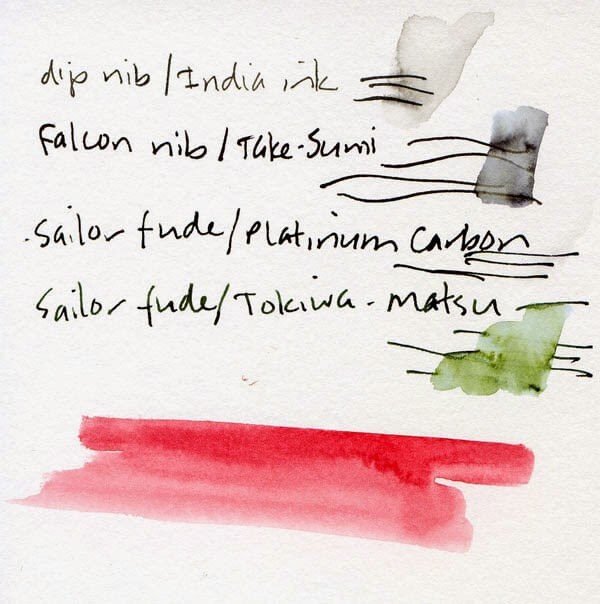 dip nib / India ink
Falcon nib / Take-Sumi
Sailor fude / Platinum Carbon
Sailor fude / Tokiwa-matsu